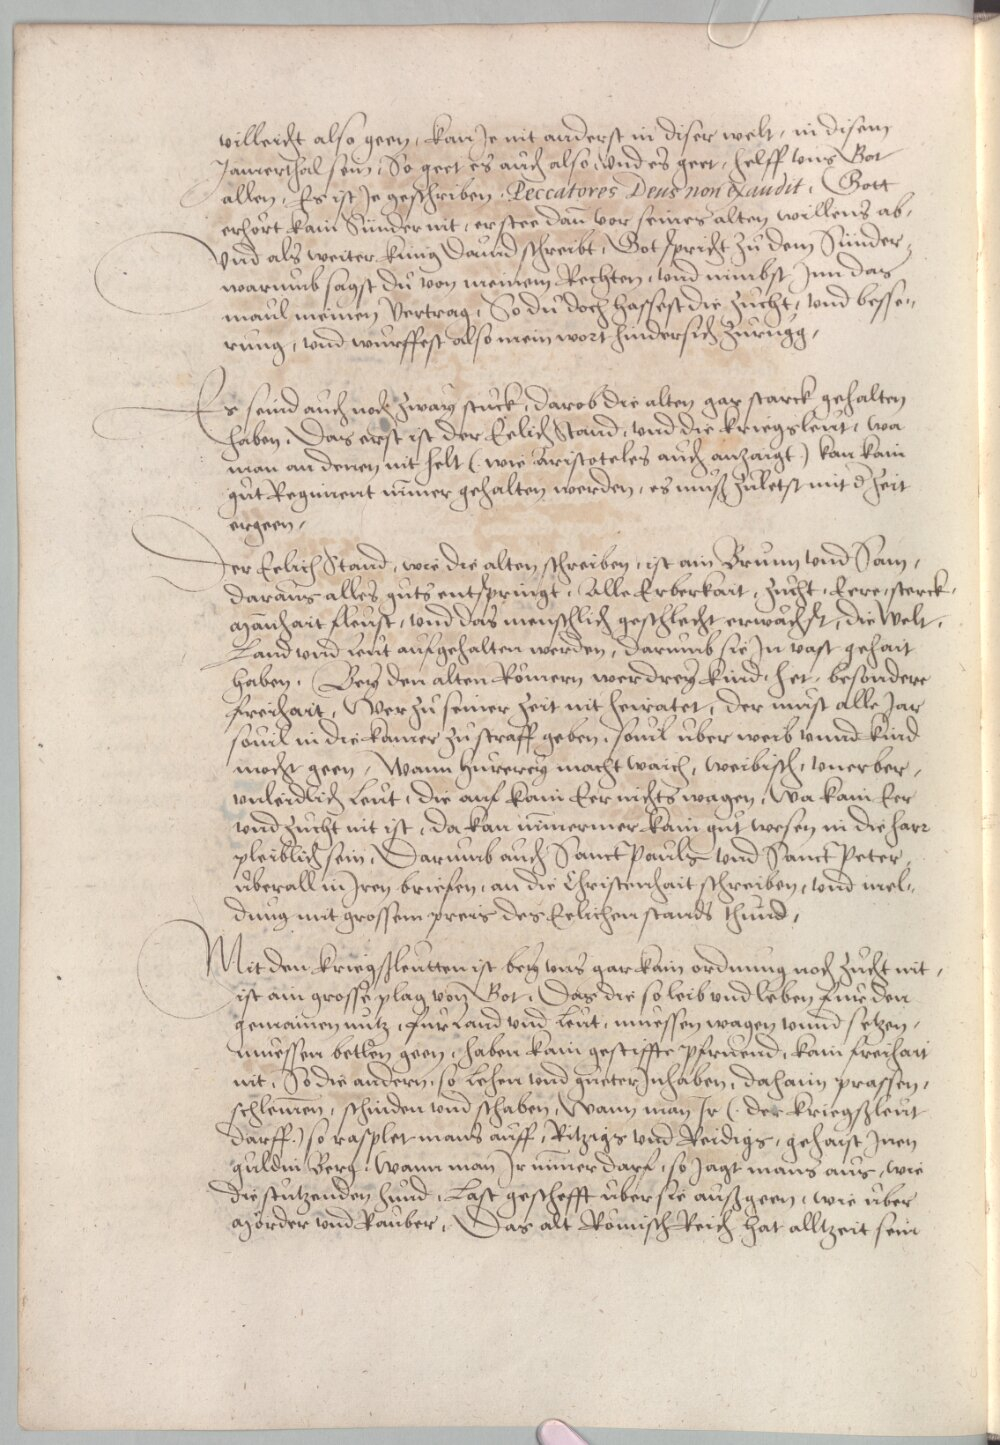 villeicht also geen, kan Je nit anderst in diser welt, in disem
Jamerthal sein, So geet es auch also, und es geet, helff uns Got
allen, Es ist Je geschriben, Peccatores Deus non exaudit, Gott
erhört kain Sünder nit, er stee dan vor seines alten willens ab,
Und als weiter künig Davind schreibt, Got spricht zu dem Sünder,
warumb sagst du von meinem Rechten, und nimbst Inn das
maul meinen Vertrag, So du doch hassest die zucht, und besse„
rung, und wurffest also mein wort hindersich zurugg,
Es seind auch noch zway stuck, darob die alten gar starck gehalten
haben, Das erst ist der Eelich Stand, und die kriegsleut, wa
man an denen nit helt (wie Aristoteles auch anzaigt) kan kain
gut Regiment nimer gehalten werden, es muß zuletst mit d Zeit
ergeen,
Der Eelich Stand, wie die alten schreiben, ist ain Brunn und Sam,
daraus alles guts entspringt, Alle Erberkait, Zucht, Eere, sterck,
Manhait fleust, und das menschlich geschlecht erwachst, die Welt,
Land und leut aufgehalten werden, darumb sie In vast gehait
haben, Bey den alten Römern wer drey kind het, besondere
freihait, Wer zu seiner Zeit nit heiratet, der must alle Jar
souil in die kamer zu straff geben, souil uber weib unnd kind
mocht geen, Wann hurerey macht waich, weibisch, unerber,
unleidlich leut, die auf kain Eer nichts wagen, Wa kain Eer
und zucht nit ist, da kan nimermer kain gut wesen in die harr
pleiblich sein, Darumb auch Sanct Pauls und Sanct Peter,
uberall in Iren briefen, an die Christenhait schreiben, und mel„
dung mit grossem preis des Eelichen stands thund,
Mit den kriegßleutten ist bey uns gar kain ordnung noch zucht nit,
ist ain grosse plag von Got, Das die so leib und leben für den
gemainen nutz, für Land und leut, muessen wagen unnd setzen,
muessen betlen geen, haben kain gestiffte pfruend, kain freihait
nit, So die andern, so lehen und gueter Inhaben, dahaim prassen,
schlemen, schinden und schaben, Wann man Ir (der kriegßleut
darff) so rasplet mans auff, Ritzigs und Reidigs, gehaist Inen
guldin Berg, Wann man Ir nimer darf, so Jagt mans aus, wie
die stutzenden hund, Last geschefft uber sie außgeen, wie uber
Mörder und Rauber, Das alt Römisch Reich hat alltzeit sein